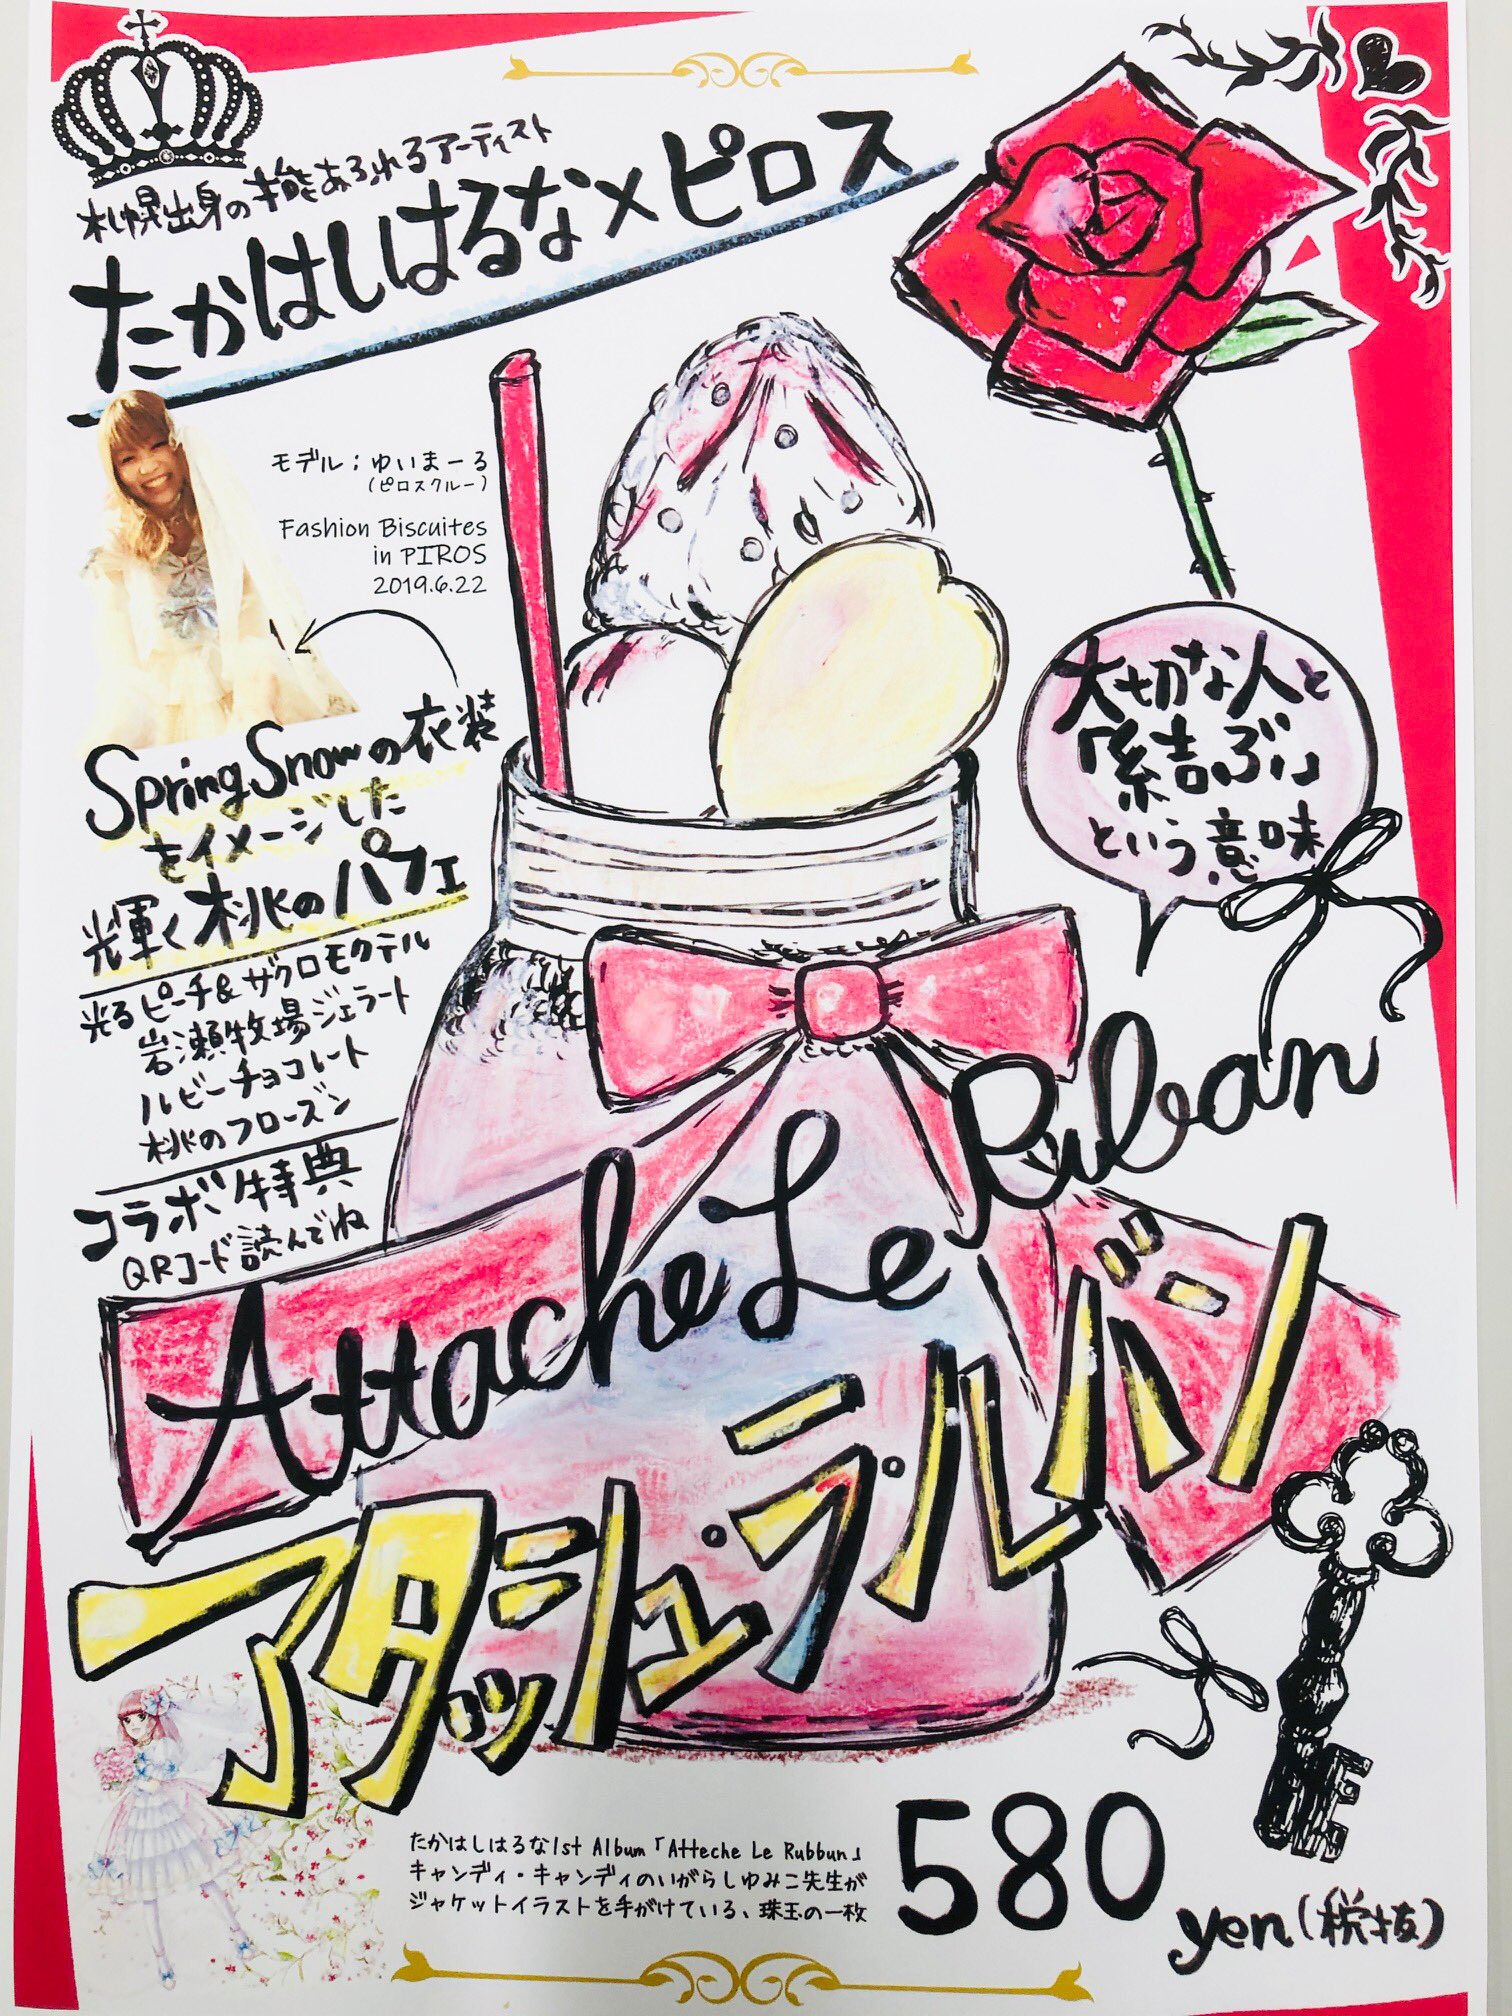 札幌出身の才能あふれるアーティスト
たかはしはるな×ピロス
モデル；ゆいまーる
（ピロスクルー）
Fashion Biscuites
in PIROS
2019.6.22
大切な人と
「結ぶ」
という意味
Spring Snowの衣装
をイメージした
輝く桃のパフェ
光るピーチ&ザクロモクテル
岩瀬牧場ジェラート
ルビーチョコレート
桃のフローズン
コラボ特典
QRコード読んでね
Attache Le Ruban
アタッシュ・ラ・ルバン
たかはしはるな1st Album「Atteche Le Rubbun」
キャンディ・キャンディのいがらしゆみこ先生が
ジャケットイラストを手がけている、珠玉の一枚
580
yen(税抜)